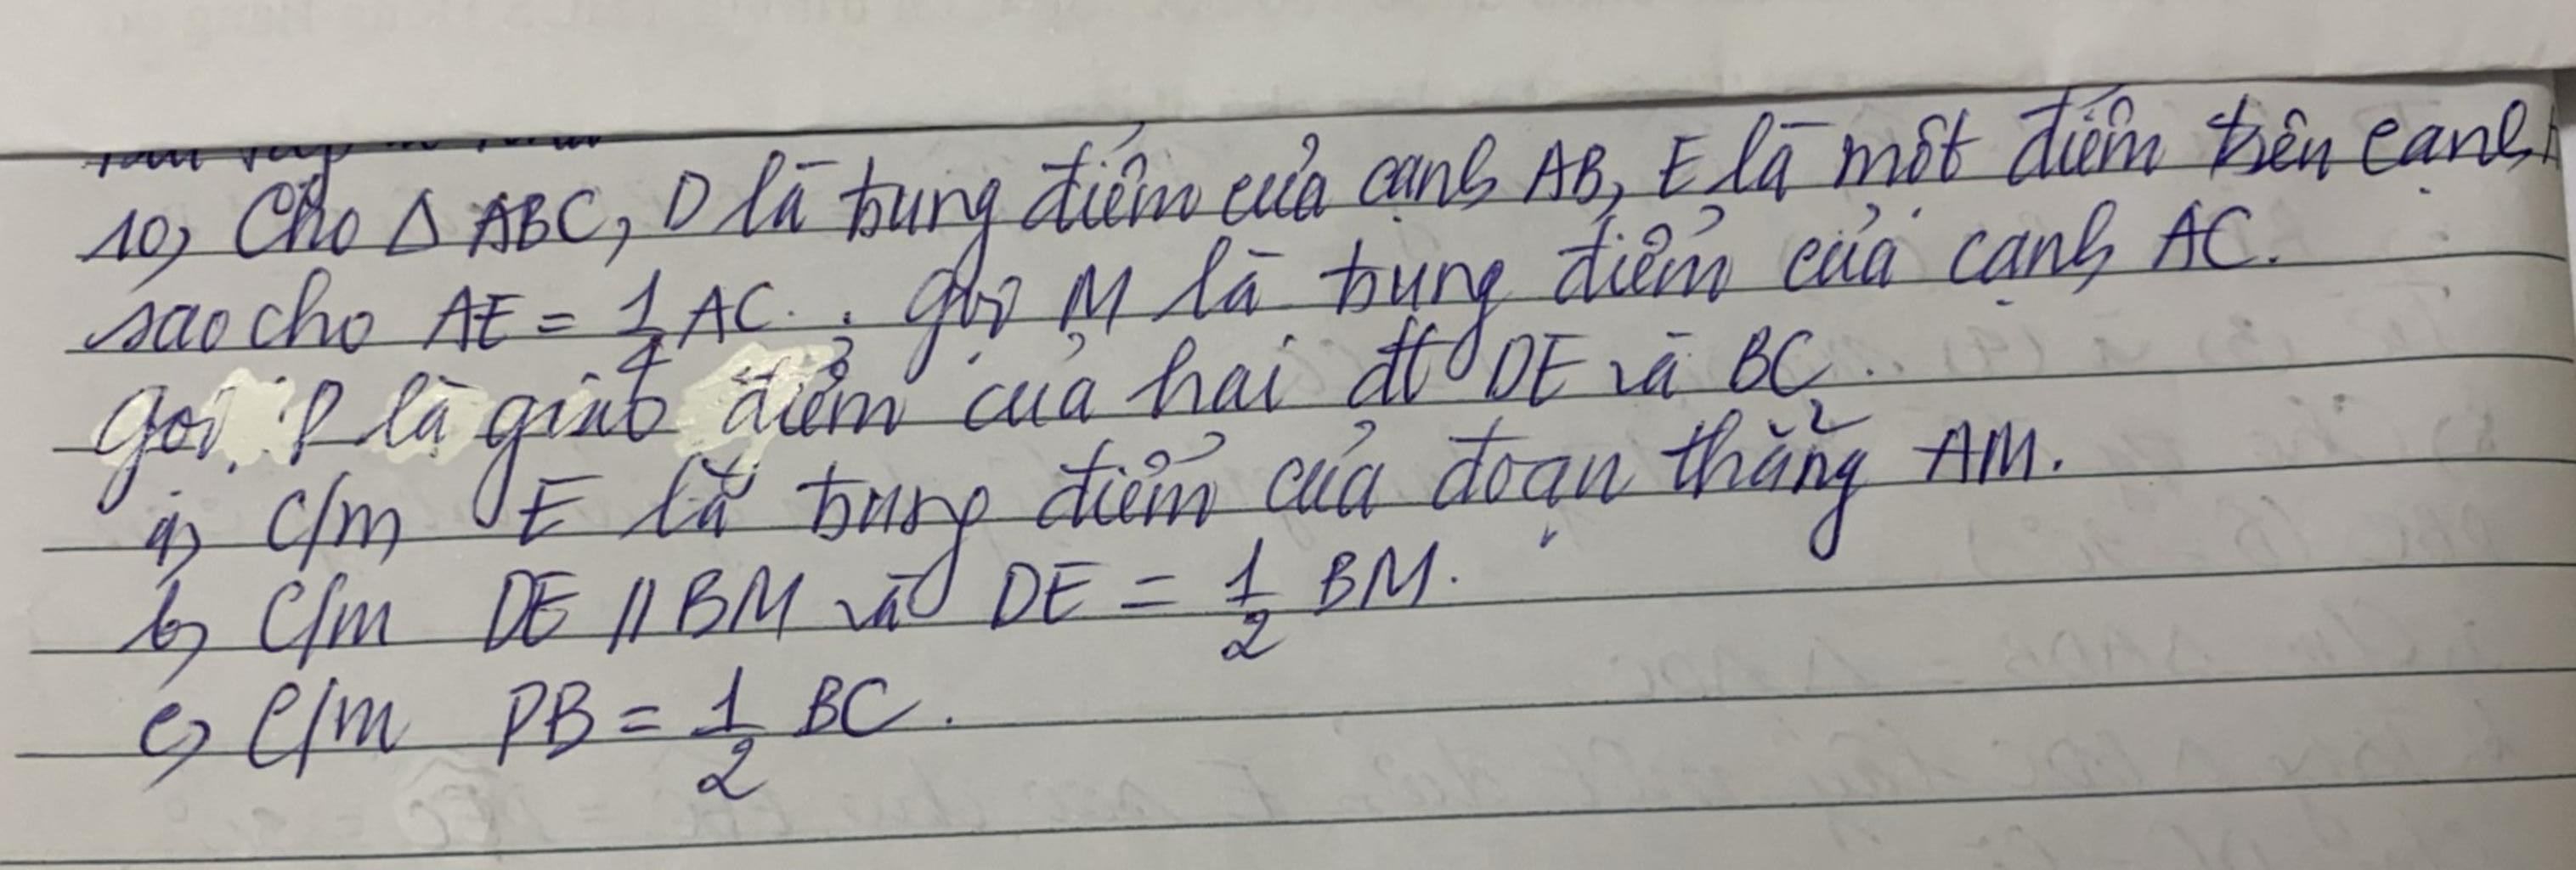 10, Cho △ ABC, D là trung điểm của cạnh AB, E là một điểm trên cạnh
sao cho AE = 1/4 AC. Gọi M là trung điểm của cạnh AC.
Gọi P là giao điểm của hai đt DE và BC.
a, C/m E là trung điểm của đoạn thẳng AM.
b, C/m DE // BM và DE = 1/2 BM.
c, C/m PB = 1/2 BC.